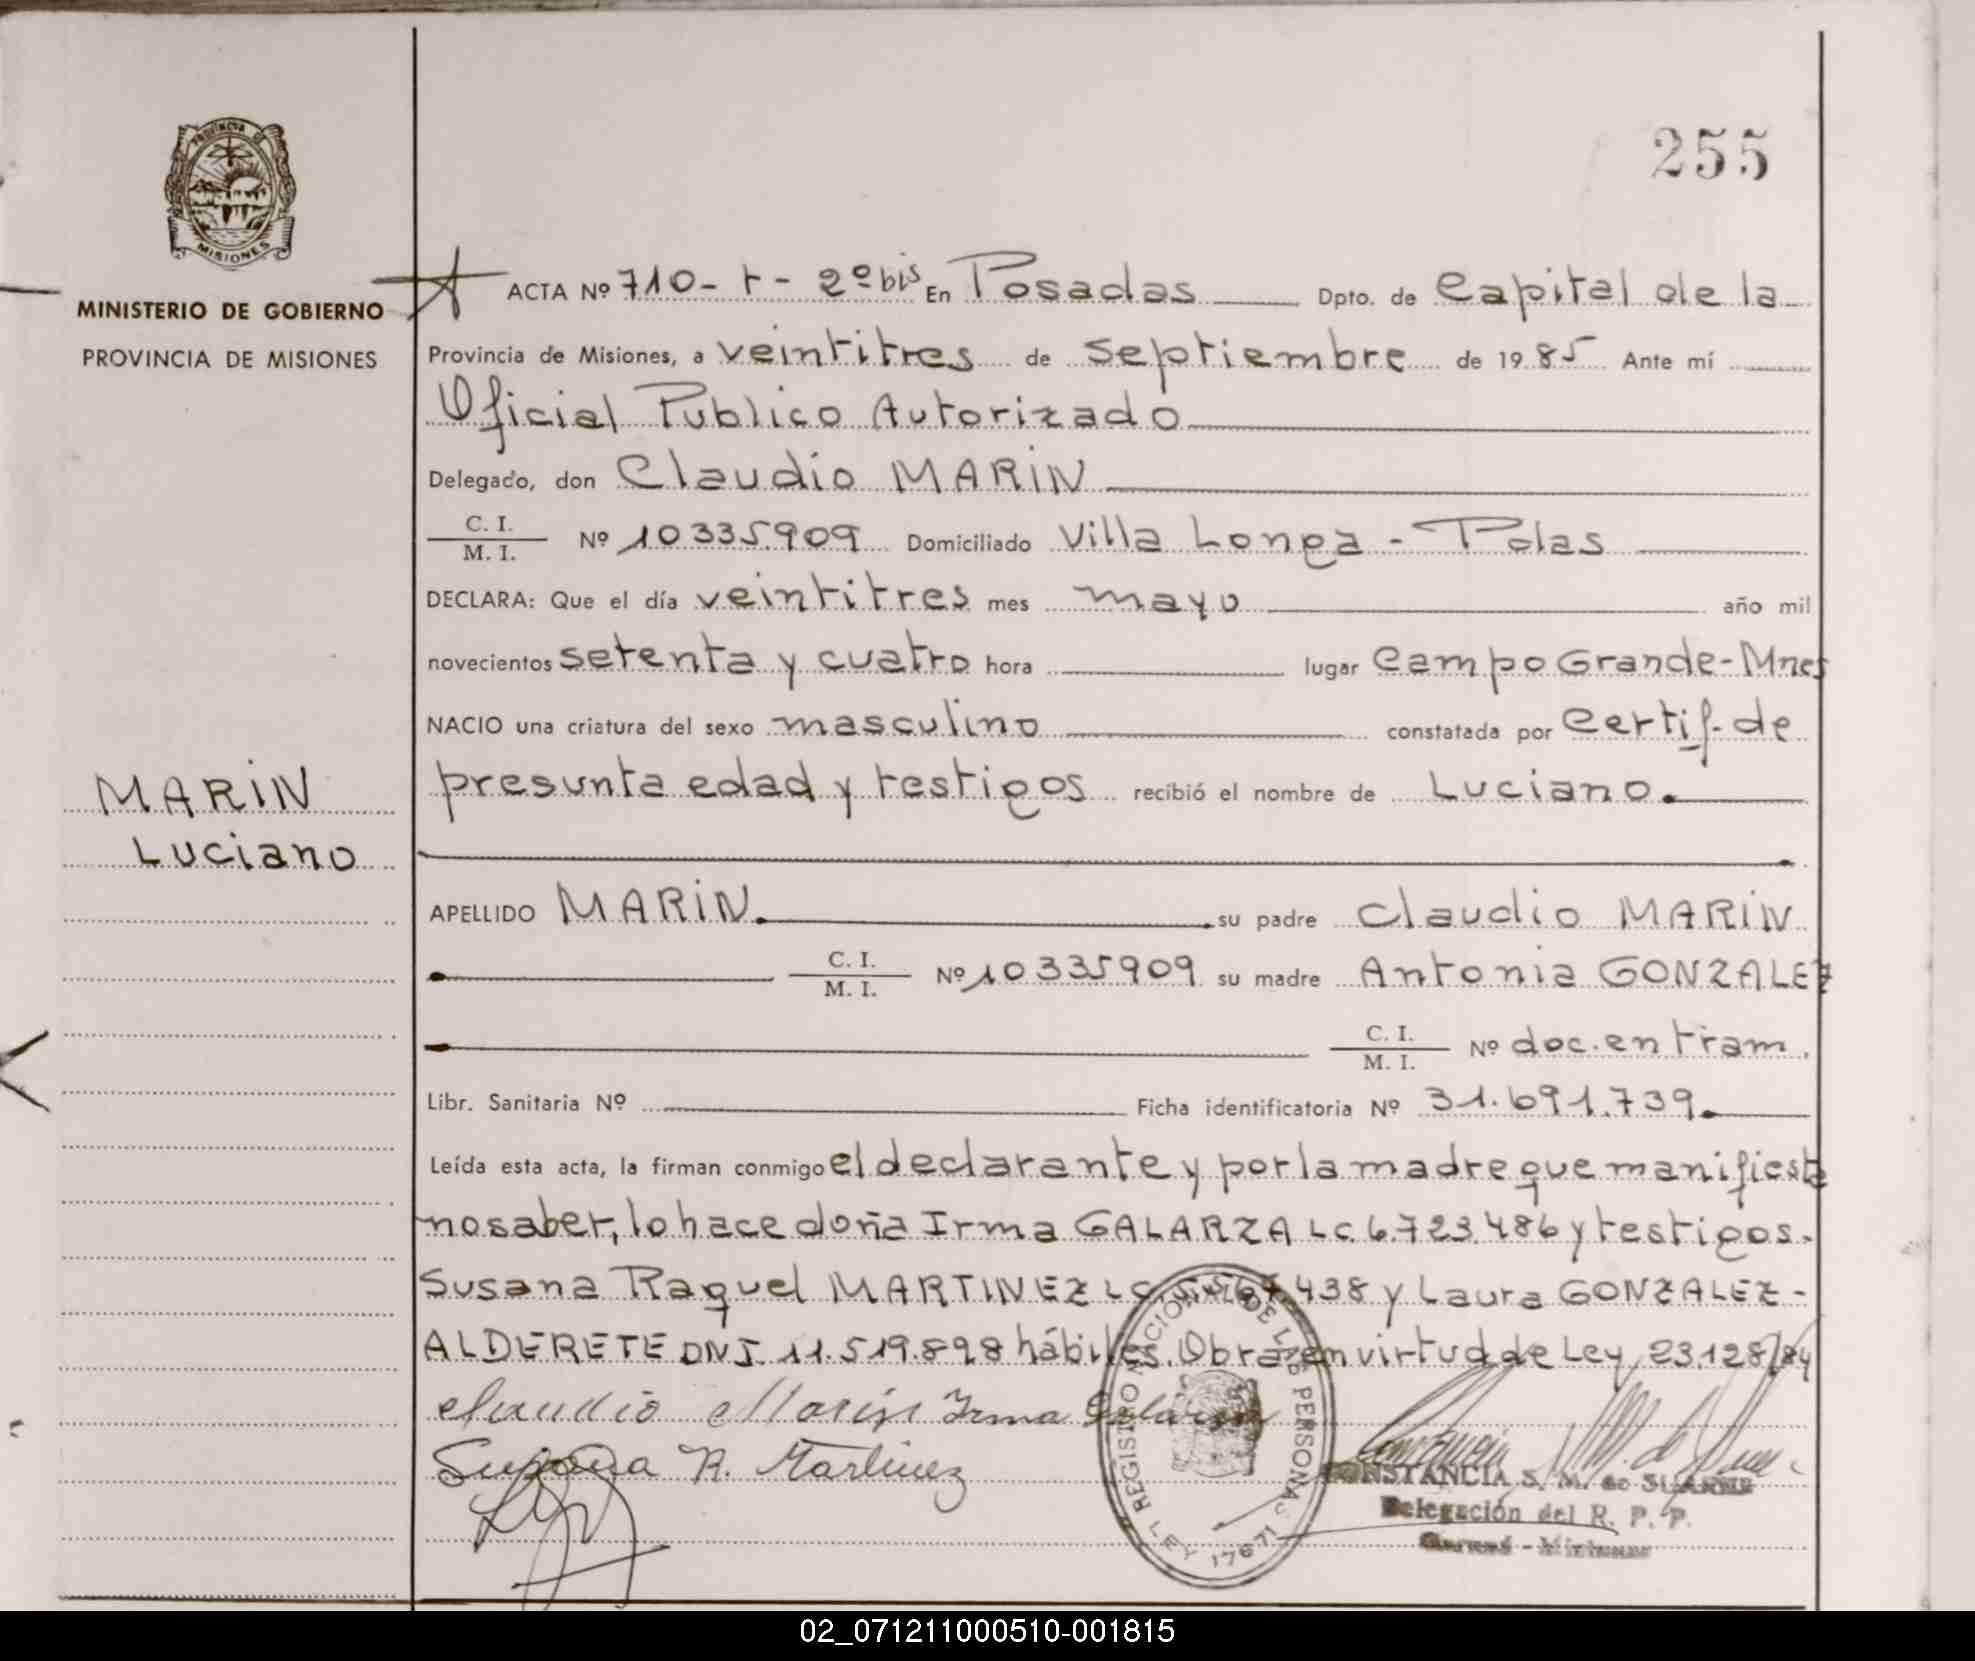 255
PROVINCIA DE
MISIONES
MINISTERIO DE GOBIERNO
PROVINCIA DE MISIONES
ACTA Nº 710 - t - 2º bis En Posadas Dpto. de Capital de la
Provincia de Misiones, a veintitres de septiembre de 1985 Ante mí
Oficial Publico Autorizado
Delegado, don Claudio MARIN
C. I.
M. I. Nº 10335.909 Domiciliado Villa Longa - Pdas
DECLARA: Que el día veintitres mes mayo año mil
novecientos setenta y cuatro hora lugar Campo Grande - Mnes
NACIO una criatura del sexo masculino constatada por Certif. de
presunta edad y testigos recibió el nombre de Luciano.
MARIN
Luciano
APELLIDO MARIN. su padre Claudio MARIN
C. I.
M. I. Nº 10335909 su madre Antonia GONZALEZ
C. I.
M. I. Nº doc. en tram.
Libr. Sanitaria Nº Ficha identificatoria Nº 31.691.739.
Leída esta acta, la firman conmigo el declarante y por la madre que manifiesta
no saber, lo hace doña Irma GALARZA LC. 6.723.486 y testigos.
Susana Raquel MARTINEZ LC 438 y Laura GONZALEZ -
ALDERETE DNI. 11.519.898 hábiles. Obra en virtud de Ley 23.128/84
Claudio Marin Irma Galarza
Susana R. Martinez
REGISTRO NACIONAL DE LAS PERSONAS
LEY 17671
CONSTANCIA S. M. de
Delegación del R. P. P.
02_071211000510-001815